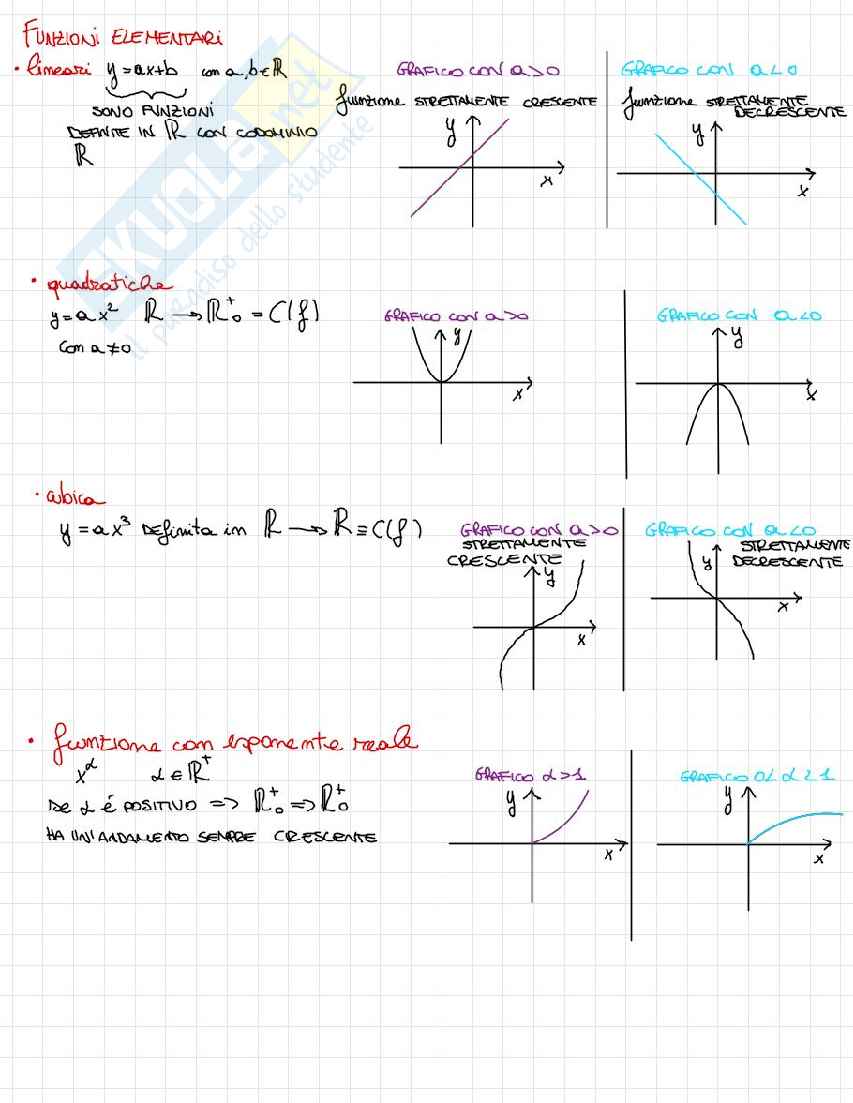 FUNZIONI ELEMENTARI
• lineari y = ax+b con a,b ∈ ℝ
SONO FUNZIONI
DEFINITE IN ℝ CON CODOMINIO
ℝ
GRAFICO CON a>0
funzione STRETTAMENTE CRESCENTE
y
x
GRAFICO CON a<0
funzione STRETTAMENTE
DECRESCENTE
y
x
SKUOLA.net
il paradiso dello studente
• quadratiche
y = a x² ℝ → ℝ₀⁺ = C(f)
con a ≠ 0
GRAFICO CON a>0
y
x
GRAFICO CON a<0
y
x
• cubica
y = a x³ DEFINITA in ℝ → ℝ ≡ C(f)
GRAFICO CON a>0
STRETTAMENTE
CRESCENTE
y
x
GRAFICO CON a<0
STRETTAMENTE
DECRESCENTE
y
x
• funzione con esponente reale
x^α α ∈ ℝ⁺
SE α É POSITIVO => ℝ₀⁺ => ℝ₀⁺
HA UN'ANDAMENTO SEMPRE CRESCENTE
GRAFICO α>1
y
x
GRAFICO 0< α < 1
y
x